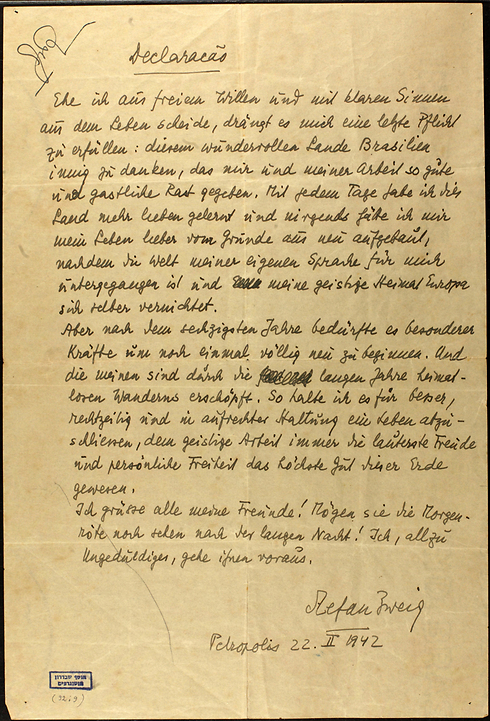 Declaracão
Ehe ich aus freiem Willen und mit klaren Sinnen
aus dem Leben scheide, drängt es mich eine letzte Pflicht
zu erfüllen: diesem wundervollen Lande Brasilien
innig zu danken, das mir und meiner Arbeit so gute
und gastliche Rast gegeben. Mit jedem Tage habe ich dies
Land mehr lieben gelernt und nirgends hätte ich mir
mein Leben lieber vom Grunde aus neu aufgebaut,
nachdem die Welt meiner eigenen Sprache für mich
untergegangen ist und meine geistige Heimat Europa
sich selber vernichtet.
Aber nach dem sechzigsten Jahre bedürfte es besonderer
Kräfte um noch einmal völlig neu zu beginnen. Und
die meinen sind durch die langen Jahre heimat-
losen Wanderns erschöpft. So halte ich es für besser,
rechtzeitig und in aufrechter Haltung ein Leben abzu-
schliessen, dem geistige Arbeit immer die lauterste Freude
und persönliche Freiheit das höchste Gut dieser Erde
gewesen.
Ich grüsse alle meine Freunde! Mögen sie die Morgen-
röte noch sehen nach der langen Nacht! Ich, allzu
Ungeduldiger, gehe ihnen voraus.
Stefan Zweig
Petropolis 22. II 1942
אוסף שבדרון